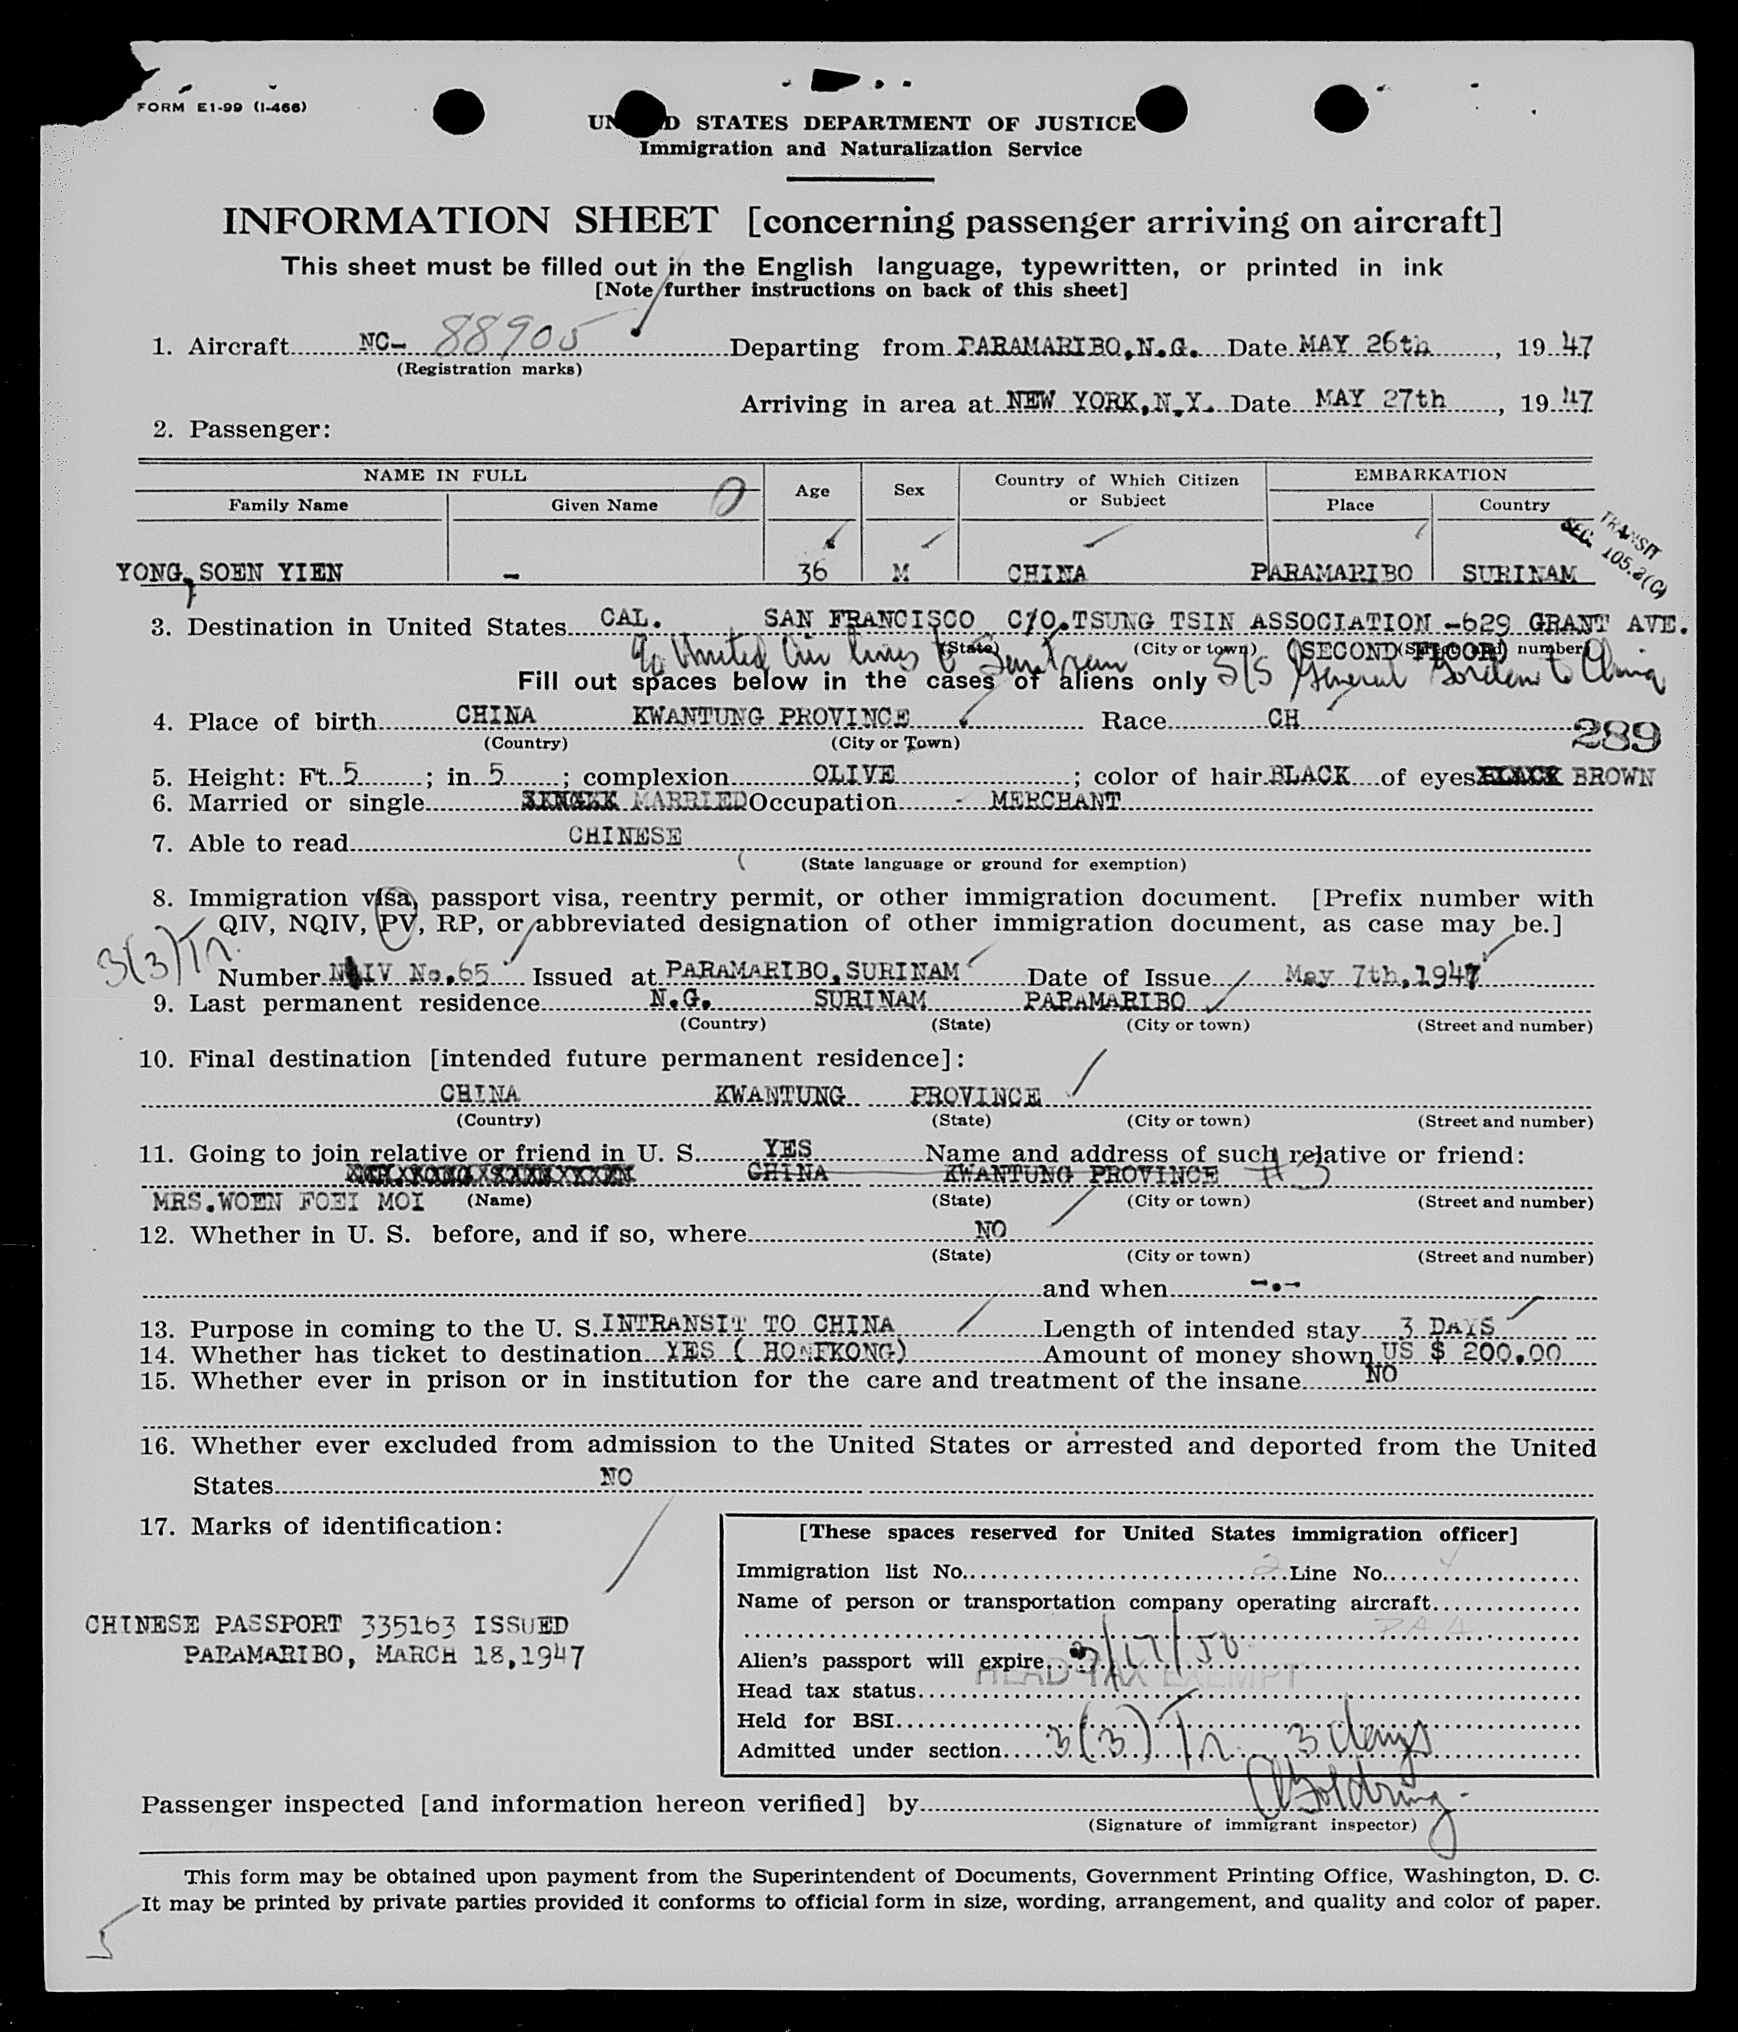 FORM E1-99 (I-466)
UNITED STATES DEPARTMENT OF JUSTICE
Immigration and Naturalization Service
INFORMATION SHEET [concerning passenger arriving on aircraft]
This sheet must be filled out in the English language, typewritten, or printed in ink
[Note further instructions on back of this sheet]
1. Aircraft NC- 88905 Departing from PARAMARIBO,N.G. Date MAY 26th, 19 47
(Registration marks)
Arriving in area at NEW YORK,N.Y. Date MAY 27th, 19 47
2. Passenger:
NAME IN FULL Age Sex Country of Which Citizen or Subject EMBARKATION
Family Name Given Name Place Country
TRANSIT
SEC. 105.3(C)
YONG, SOEN YIEN - 36 M CHINA PARAMARIBO SURINAM
3. Destination in United States CAL. SAN FRANCISCO C/O.TSUNG TSIN ASSOCIATION -629 GRANT AVE.
(State) (City or town) (Street and number)
(SECOND FLOOR)
c/o United Air lines to San Fran S/S General Gordon to China
Fill out spaces below in the cases of aliens only
4. Place of birth CHINA KWANTUNG PROVINCE Race CH
(Country) (City or Town)
289
5. Height: Ft. 5; in. 5; complexion OLIVE; color of hair BLACK of eyes BLACK BROWN
6. Married or single SINGLE MARRIED Occupation - MERCHANT
7. Able to read CHINESE
(State language or ground for exemption)
8. Immigration visa, passport visa, reentry permit, or other immigration document. [Prefix number with
QIV, NQIV, PV, RP, or abbreviated designation of other immigration document, as case may be.]
3(3)Tr.
Number IV No.65 Issued at PARAMARIBO,SURINAM Date of Issue May 7th,1947
9. Last permanent residence N.G. SURINAM PARAMARIBO
(Country) (State) (City or town) (Street and number)
10. Final destination [intended future permanent residence]:
CHINA KWANTUNG PROVINCE
(Country) (State) (City or town) (Street and number)
11. Going to join relative or friend in U. S. YES Name and address of such relative or friend:
CHINA KWANTUNG PROVINCE #3
MRS.WOEN FOEI MOI (Name) (State) (City or town) (Street and number)
12. Whether in U. S. before, and if so, where NO
(State) (City or town) (Street and number)
and when -.-
13. Purpose in coming to the U. S. INTRANSIT TO CHINA Length of intended stay 3 DAYS
14. Whether has ticket to destination YES ( HONFKONG) Amount of money shown US $ 200.00
15. Whether ever in prison or in institution for the care and treatment of the insane NO
16. Whether ever excluded from admission to the United States or arrested and deported from the United
States NO
17. Marks of identification:
CHINESE PASSPORT 335163 ISSUED
PARAMARIBO, MARCH 18,1947
[These spaces reserved for United States immigration officer]
Immigration list No. 2 Line No. 4
Name of person or transportation company operating aircraft
PAA
Alien's passport will expire 3/17/50
Head tax status HEAD TAX EXEMPT
Held for BSI
Admitted under section 3(3) Tr. 3 days
Passenger inspected [and information hereon verified] by Goldring
(Signature of immigrant inspector)
This form may be obtained upon payment from the Superintendent of Documents, Government Printing Office, Washington, D. C.
It may be printed by private parties provided it conforms to official form in size, wording, arrangement, and quality and color of paper.
5